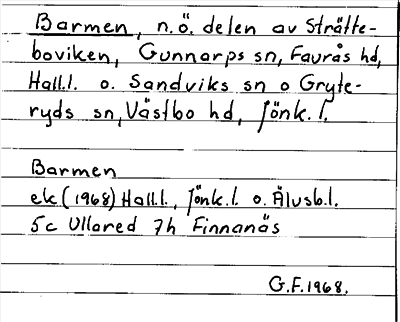 Barmen, n.ö. delen av Strätte-
boviken, Gunnarps sn, Faurås hd,
Hall.l. o. Sandviks sn o Gryte-
ryds sn, Västbo hd, Jönk.l.
Barmen
ek (1968) Hall.l., Jönk.l. o. Älvsb.l.
5c Ullared 7h Finnanäs
G.F.1968.